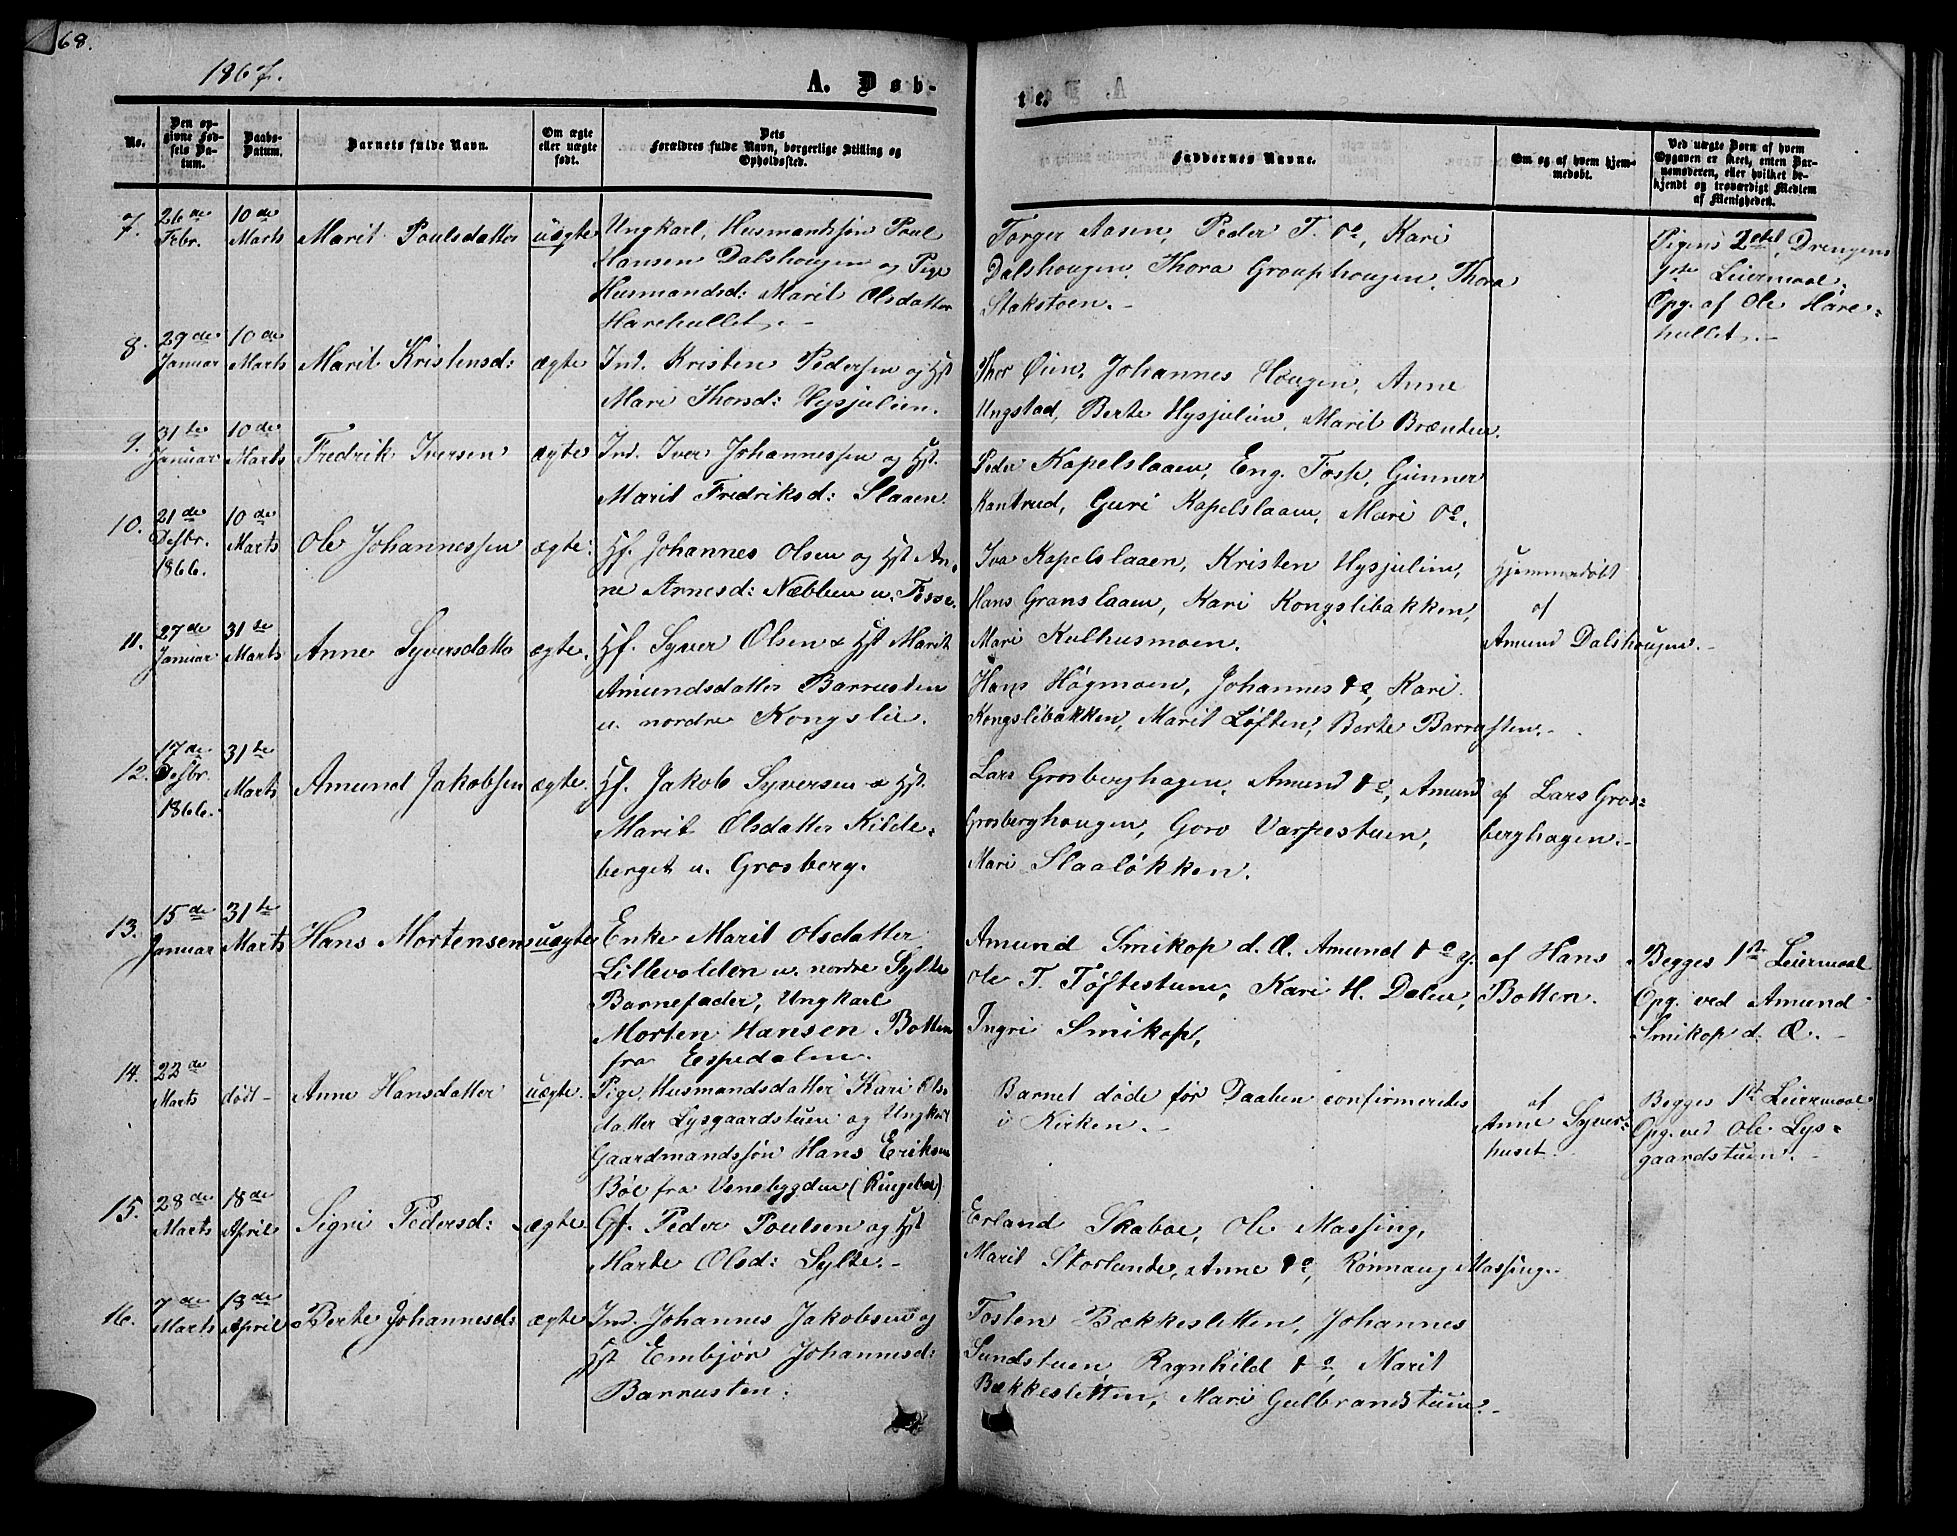 68.
1867.
A. Døb-
te.
No.
Den op-
givne Fød-
sels Da-
tum.
Daabs-
Datum.
Barnets fulde Navn.
Om ægte
eller uægte
født.
Dets
Forældres fulde Navn, borgerlige Stilling og
Opholdssted.
Faddernes Navne.
Om og af hvem hjem-
medøbt.
Ved uægte Børn af hvem
Opgaven er skeet, enten Bar-
nemoderen, eller hvilket be-
kjendt og troværdigt Medlem
af Menigheden.
7. 26de Febr. 10de Marts Marit Poulsdatter uægte
Ungkarl, Husmandssøn Poul
Hansen Dalshougen og Pige
Husmandsd: Marit Olsdatter
Harehullet.-
Torger Aasen, Peder T. do, Kari
Dalshougen, Thora Grouphougen, Thora
Stakstoen.-
Pigens 2det, Drengens
1ste Leiermaal.
Opg. af Ole Hare=
hullet.-
8. 29de Januar 10de Marts Marit Kristensd: ægte
Ind. Kristen Pedersen og Hst
Mari Thorsd: Hysjulien.
Thor Øien, Johannes Hougen, Anne
Ungstad, Berte Hysjulien, Marit Brænden.
9. 31te Januar 10de Marts Fredrik Iversen ægte
Ind. Iver Johannessen og Hst.
Marit Fredriksd: Slaaen.
Peder Kapelslaaen, Eng. Foss, Gunner
Kantrud, Guri Kapelslaaen, Mari do.
10. 21de Desbr. 1866. 10de Marts Ole Johannessen ægte:
Hf. Johannes Olsen og Hst An-
ne Arnesd: Næbben u. Fosse.
Iva Kapelslaaen, Kristen Hysjulien,
Hans Granslaaen, Kari Kongslibakken,
Mari Kulhusmoen.
Hjemmedøbt
af
Amund Dalshougen.-
11. 27de Januar 31te Marts Anne Syversdatter ægte.
Hf. Syver Olsen & Hst Marit
Amundsdatter Barrusten
u. nordre Kongslie.
Hans Høgmoen, Johannes do, Kari
Kongslibakken, Marit Løften, Berte Barrusten.-
12. 17de Desbr. 1866. 31te Marts Amund Jakobsen ægte.
Hf. Jakob Syversen & Hst.
Marit Olsdatter Kilde=
berget u. Grosberg.
Lars Grosberghagen, Amund do, Amund
Grosberghougen, Goro Varpestuen,
Mari Slaaløkken.
af Lars Gros=
berghagen.-
13. 15de Januar 31te Marts Hans Mortensen uægte
Enke Marit Olsdatter
Lillevolden u. nordre Sylte
Barnefader, Ungkarl
Morten Hansen Botten
fra Espedalen.
Amund Smikop d. Æ. Amund do y.
Ole T. Tøftestuen, Kari H. Dalen,
Ingri Smikop,
af Hans
Botten.
Begges 1ste Leiermaal
Opg. ved Amund
Smikop d. Æ.-
14. 22de Marts død- Anne Hansdatter uægte.
Pige, Husmandsdatter Kari Ols-
datter Lysgaardstuen og Ungkarl
Gaardmandssøn Hans Eriksen
Bøe fra Venebygden (Ringeboe)
Barnet døde før Daaben confirmeredes
i Kirken.-
af
Anne Syver-
huset.
Begges 1ste Leiermaal
Opg. ved Ole Lys=
gaardstuen.-
15. 28de Marts 18de April Sigri Pedersd: ægte
Gf. Peder Poulsen og Hst
Marte Olsd: Sylte.-
Erland Skaboe, Ole Massing,
Marit Storlunde, Anne do, Rønnaug Massing.
16. 7de Marts 18de April Berte Johannesd: ægte
Ind. Johannes Jakobsen og
Hst Embjør Johannesd:
Barrusten:
Tosten Bækkesletten, Johannes
Sundstuen, Ragnhild do, Marit
Bækkesletten, Mari Gulbrandstuen.-